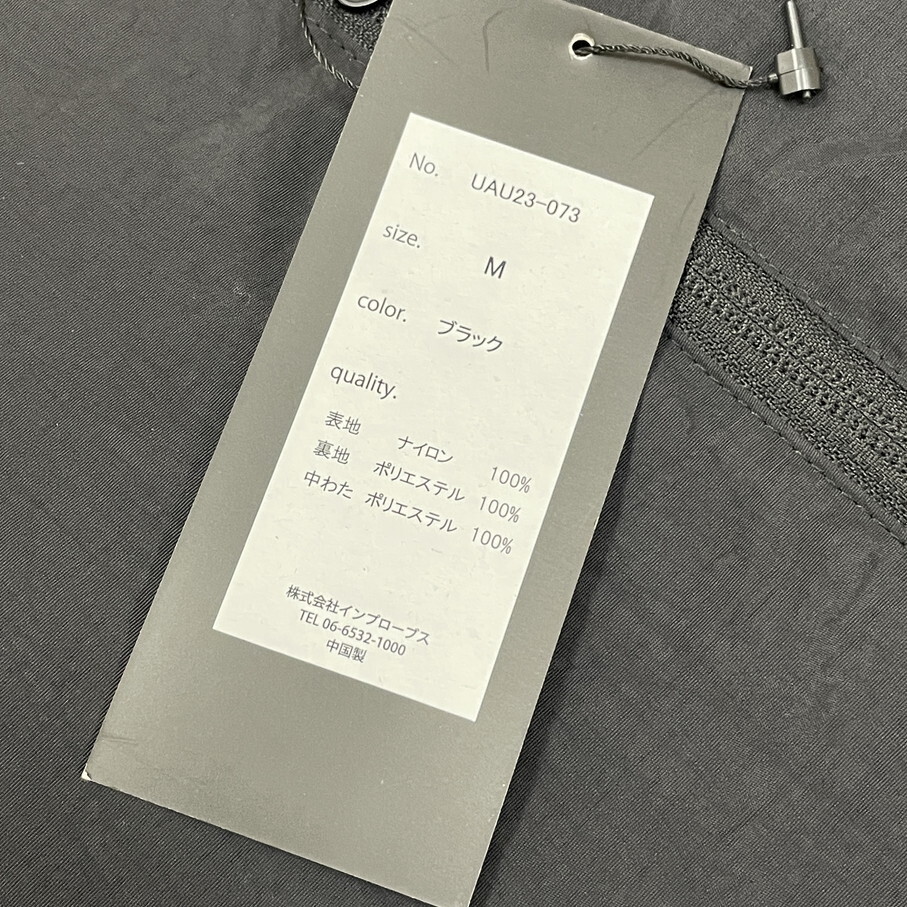 No. UAU23-073
size. M
color. ブラック
quality.
表地 ナイロン 100%
裏地 ポリエステル 100%
中わた ポリエステル 100%
株式会社インプローブス
TEL 06-6532-1000
中国製